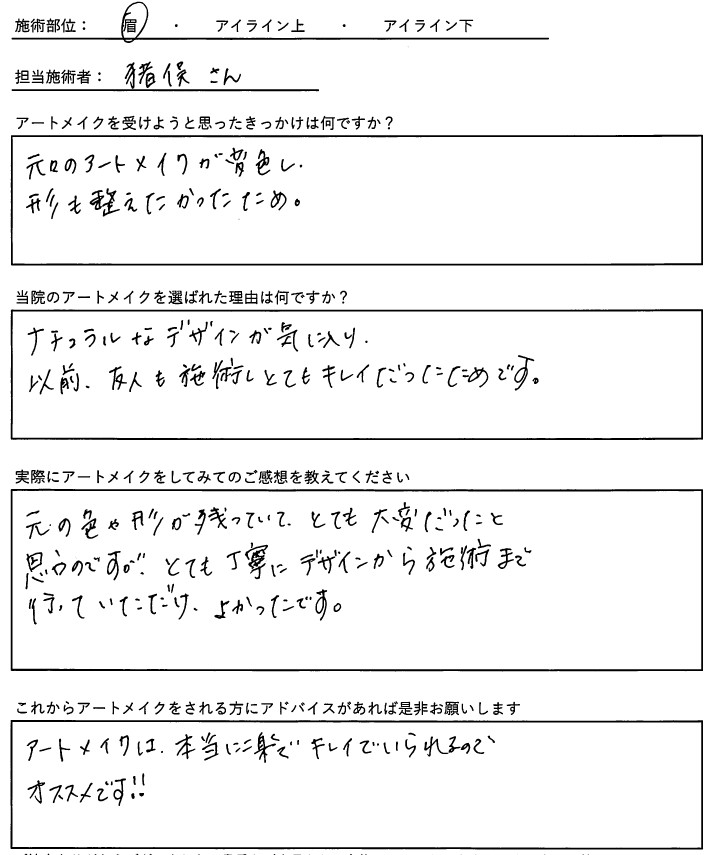 施術部位： 眉 ・ アイライン上 ・ アイライン下
担当施術者： 猪俣さん
アートメイクを受けようと思ったきっかけは何ですか？
元々のアートメイクが変色し、
形も整えたかったため。
当院のアートメイクを選ばれた理由は何ですか？
ナチュラルなデザインが気に入り、
以前、友人も施術しとてもキレイだったためです。
実際にアートメイクをしてみてのご感想を教えてください
元の色や形が残っていて、とても大変だったと
思うのですが、とても丁寧にデザインから施術まで
行っていただけ、よかったです。
これからアートメイクをされる方にアドバイスがあれば是非お願いします
アートメイクは、本当に楽でキレイでいられるので
オススメです!!